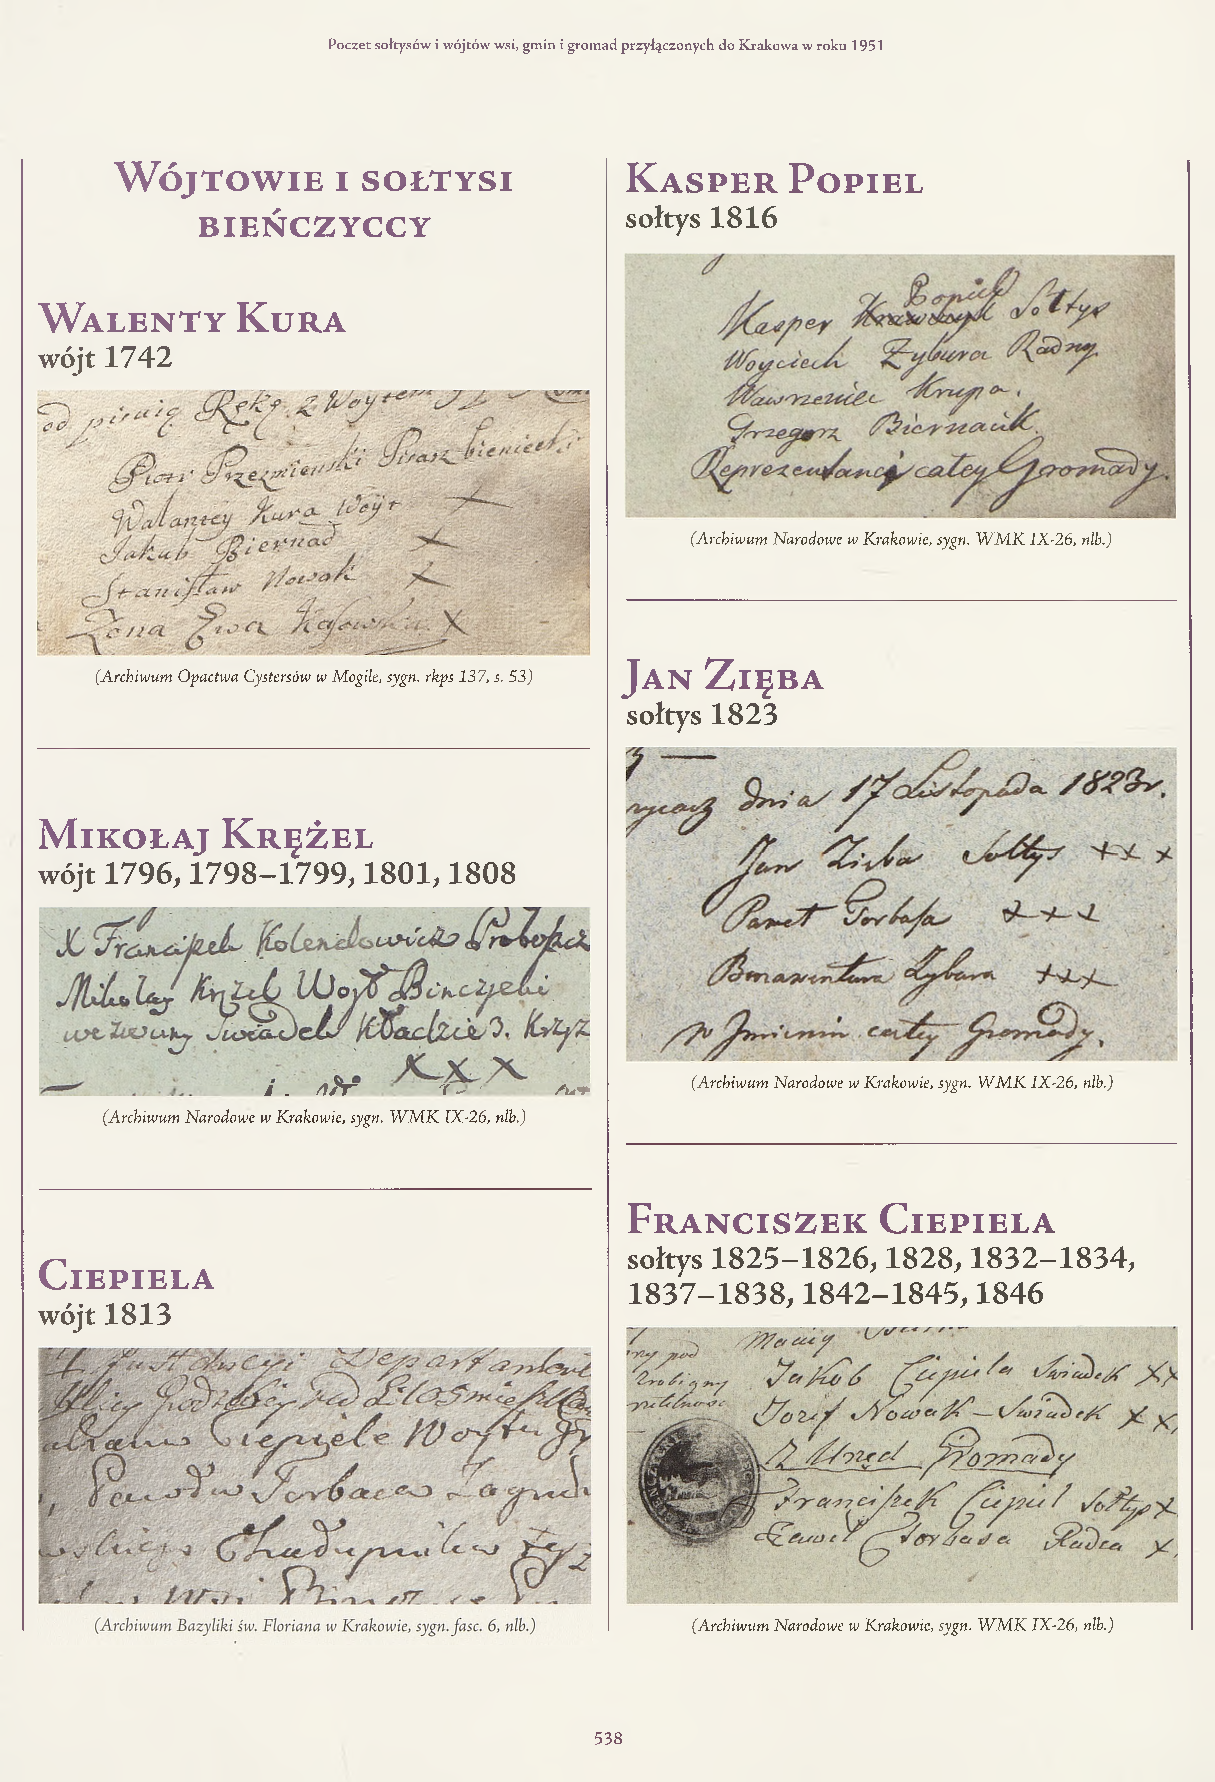 Poczet sołtysów i wójtów wsi, gmin i gromad przyłączonych do Krakowa w roku 1951
Wójtowie i sołtysi
bieńczyccy
Walenty Kura
wójt 1742
od piwnią Rękę z Woytem
Piotr Przezmienski Pisarz bieniecki
Walantey Kura Woyt X
Jakub Biernad X
Stanisław Nowak X
Zona Ewa Kasowska X
(Archiwum Opactwa Cystersów w Mogile, sygn. rkps 137, s. 53)
Mikołaj Krężel
wójt 1796, 1798–1799, 1801, 1808
X Franciszek Kolendowicz Probosz
Mikolay Krzęl Woyt Binczycki
wezwany Swiadek Kładzie 3. Krzyż
X X X
(Archiwum Narodowe w Krakowie, sygn. WMK IX-26, nlb.)
Ciepiela
wójt 1813
Departamen
Ciepiele Woytu
Torbaca Zagrod
Chałupnikw
(Archiwum Bazyliki św. Floriana w Krakowie, sygn. fasc. 6, nlb.)
Kasper Popiel
sołtys 1816
Popiel
Kasper Krawczyk Sołtys
Woyciech Zybura Radny
Wawrzeniec Krupa.
Grzegorz Biernacik.
Reprezentanci całey Gromady.
(Archiwum Narodowe w Krakowie, sygn. WMK IX-26, nlb.)
Jan Zięba
sołtys 1823
dnia 17 Listopada 1823r.
Jan Zieba Sołtys XX X
Paweł Torbasa X X X
Bonawentura Zybura XXX
w Jmieniu całey Gromady.
(Archiwum Narodowe w Krakowie, sygn. WMK IX-26, nlb.)
Franciszek Ciepiela
sołtys 1825–1826, 1828, 1832–1834,
1837–1838, 1842–1845, 1846
Maciey
ny pod
Zrobiony
Jakob Ciepiela Swiadek XX
Jozef Nowak – Swiadek X X
Z Urzęd Gromady
Franciszek Ciepiel Sołtys X
Paweł Torbasa Radca X
(Archiwum Narodowe w Krakowie, sygn. WMK IX-26, nlb.)
538